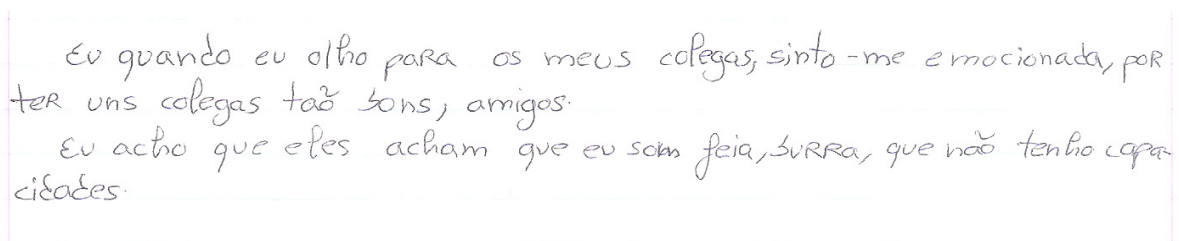 Eu quando eu olho para os meus colegas, sinto-me emocionada, por
ter uns colegas taõ bons, amigos.
Eu acho que eles acham que eu som feia, burra, que naõ tenho capa-
cidades.